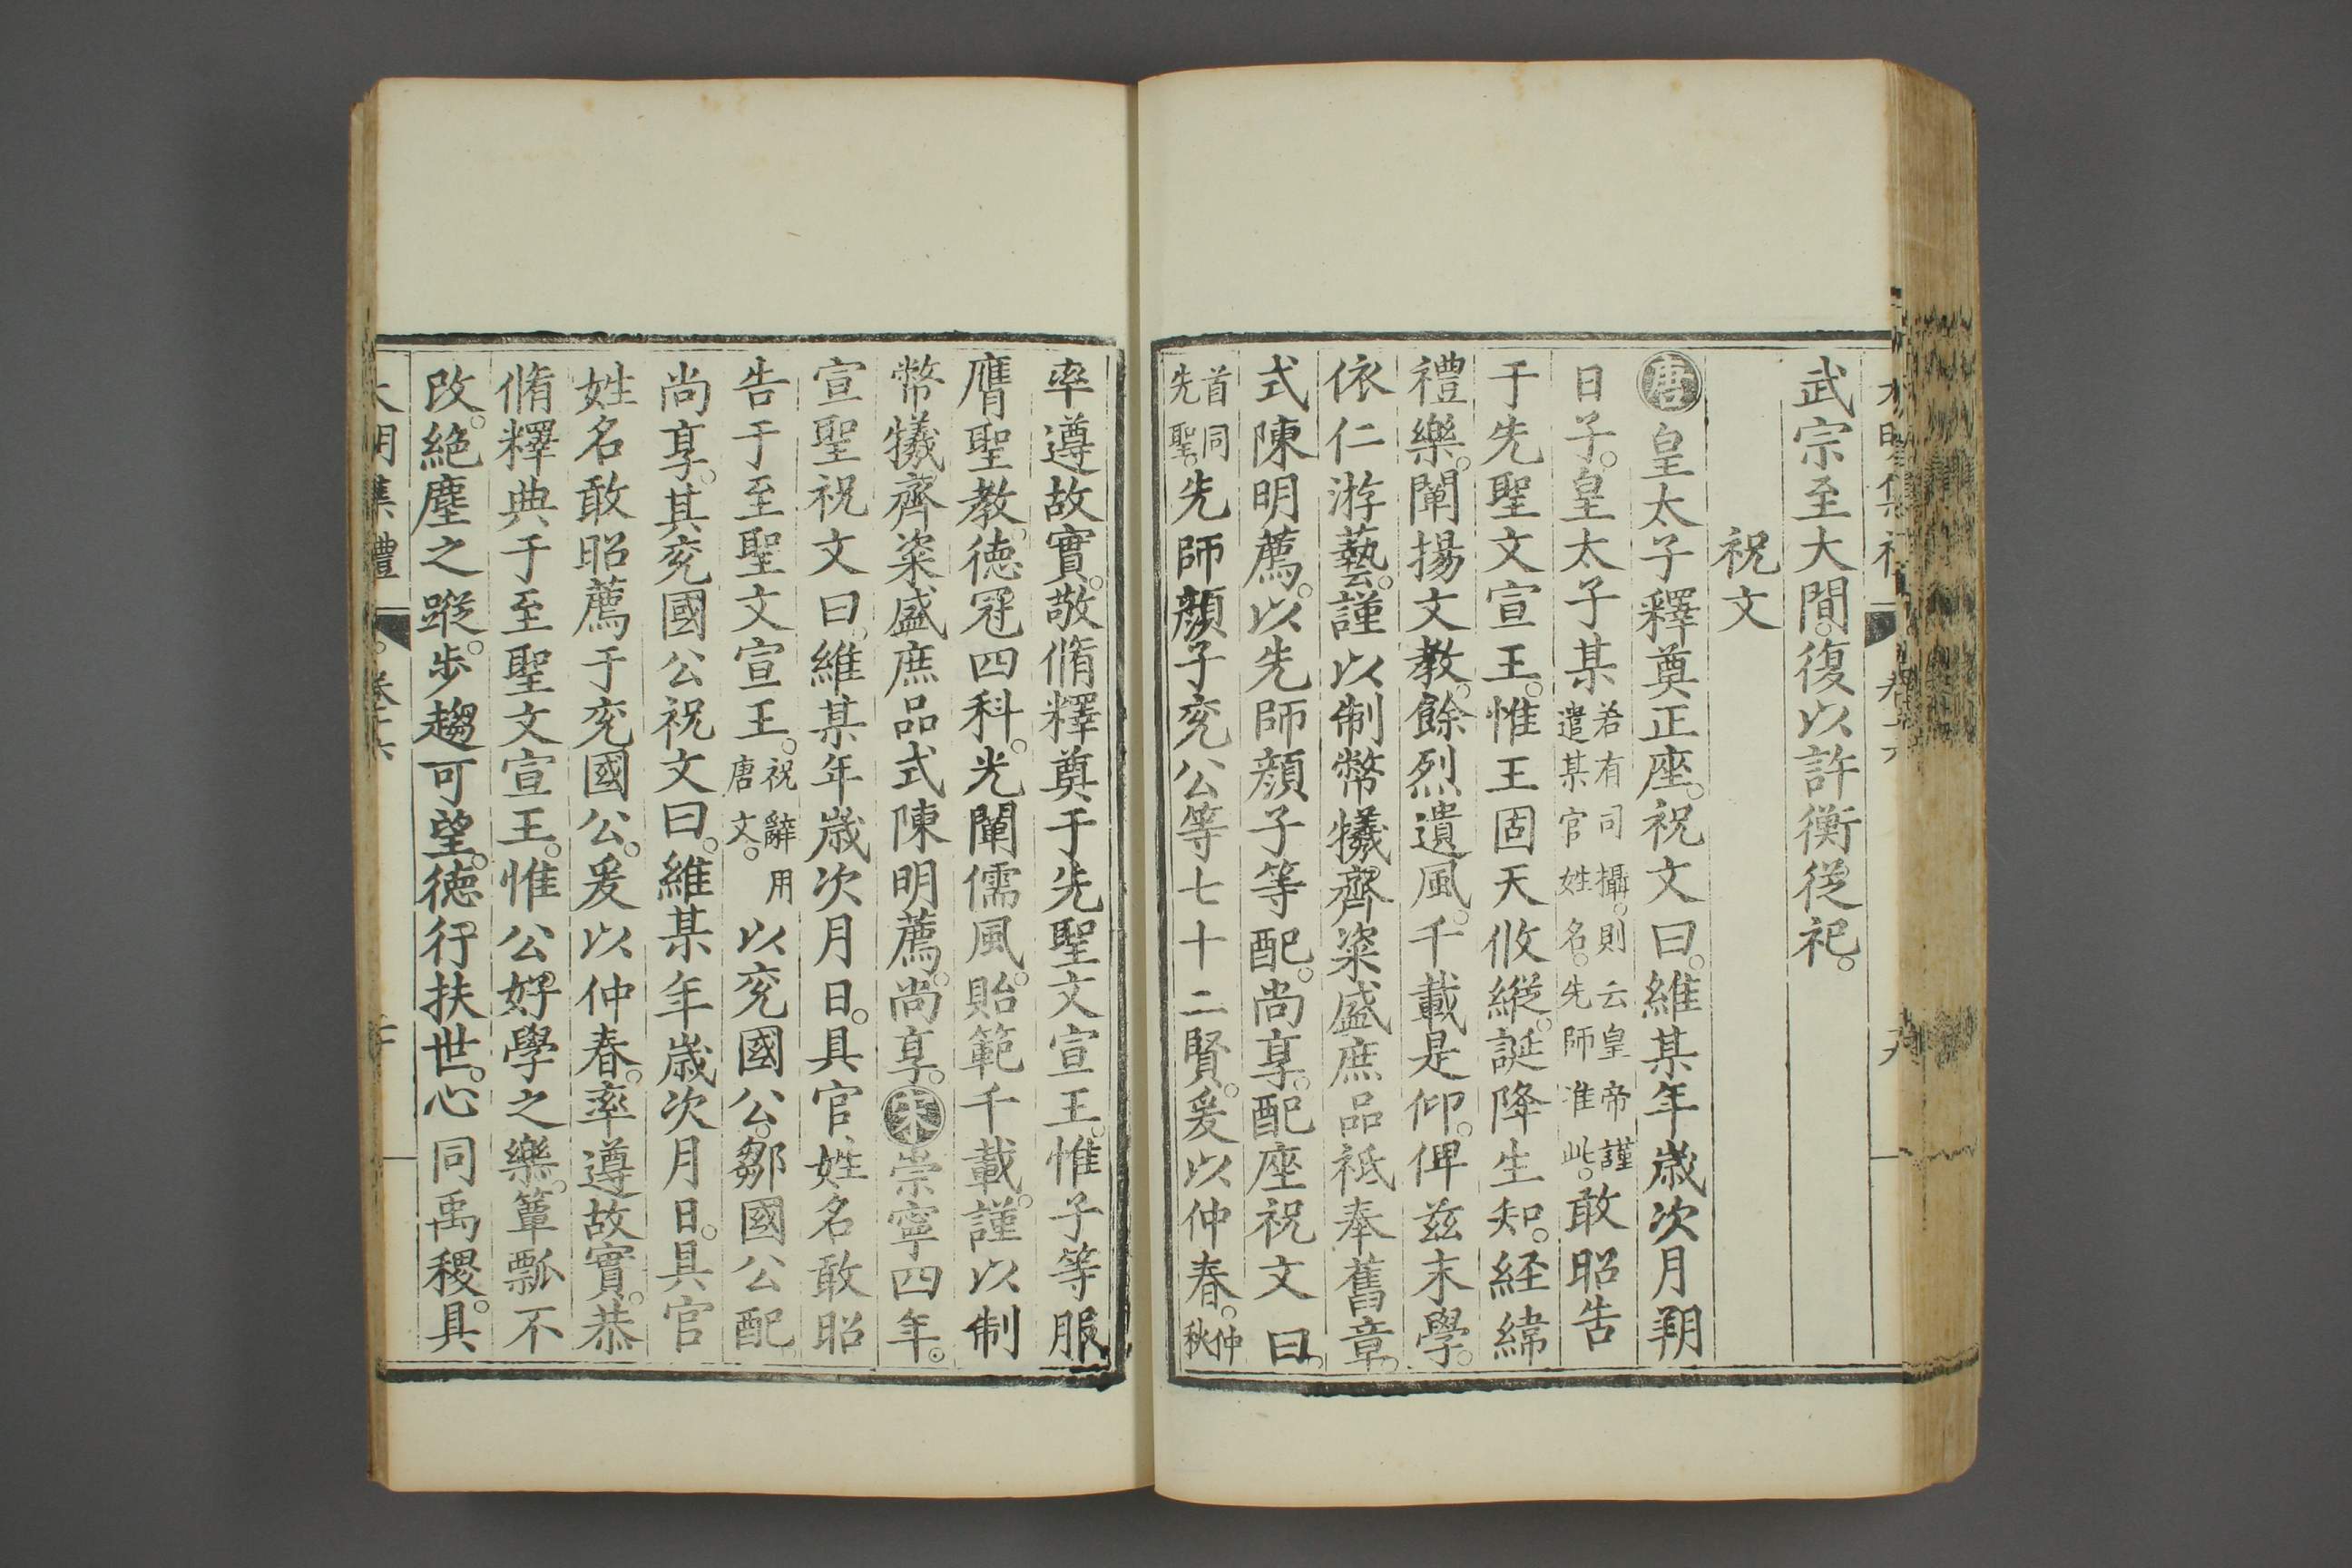 武宗至大間。復以許衡從祀。
祝文
唐皇太子釋奠正座。祝文曰。維某年歲次月朔
日子。皇太子某若有司攝。則云皇帝謹遣某官姓名。先師准此。敢昭告
于先聖文宣王。惟王固天攸縱。誕降生知。経緯
禮樂。闡揚文教。餘烈遺風。千載是仰。俾茲末學。
依仁游藝。謹以制幣犧齊粢盛庶品祗奉舊章。
式陳明薦。以先師顔子等配。尚享。配座祝文曰。
首同先聖。先師顔子兖公等七十二賢。爰以仲春。仲秋
率遵故實。敬脩釋奠于先聖文宣王。惟子等服
膺聖教。德冠四科。光闡儒風。貽範千載。謹以制
幣犧齊粢盛庶品式陳明薦。尚享。宋崇寧四年。
宣聖祝文曰。維某年歲次月日。具官姓名敢昭
告于至聖文宣王。祝辭用唐文。以兖國公。鄒國公配。
尚享。其兖國公祝文曰。維某年歲次月日。具官
姓名敢昭薦于兖國公。爰以仲春。率遵故實。恭
脩釋典于至聖文宣王。惟公好學之樂。簞瓢不
改。絶塵之蹤。步趨可望。德行扶世。心同禹稷。具
大明集禮 卷十六